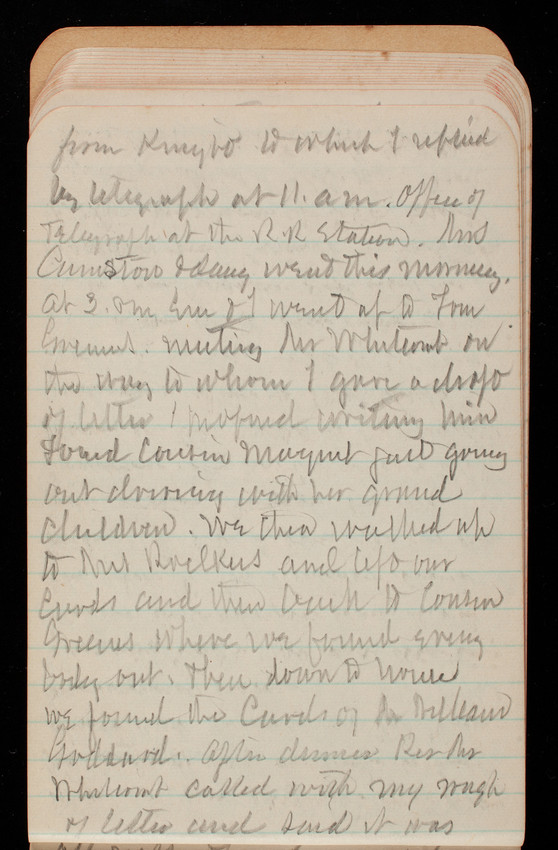 from to which I replied
by telegraph at 11. a.m. Office of
Telegraph at the R.R Station. Mrs
went this morning.
at 3. Em & I went up to Tom
Greenes. meeting Mr Whitcomb on
the way to whom I gave a
of letter I proposed writing him
Found Cousin Margret just going
out driving with her grand
children. We then walked up
to Mrs and left our
Cards and then back to Cousin
Greenes where we found every
body out. Then down to house
we found the Cards of Mr William
Goddard. After dinner Rev Mr
Whitcomb called with my rough
of letter and said it was